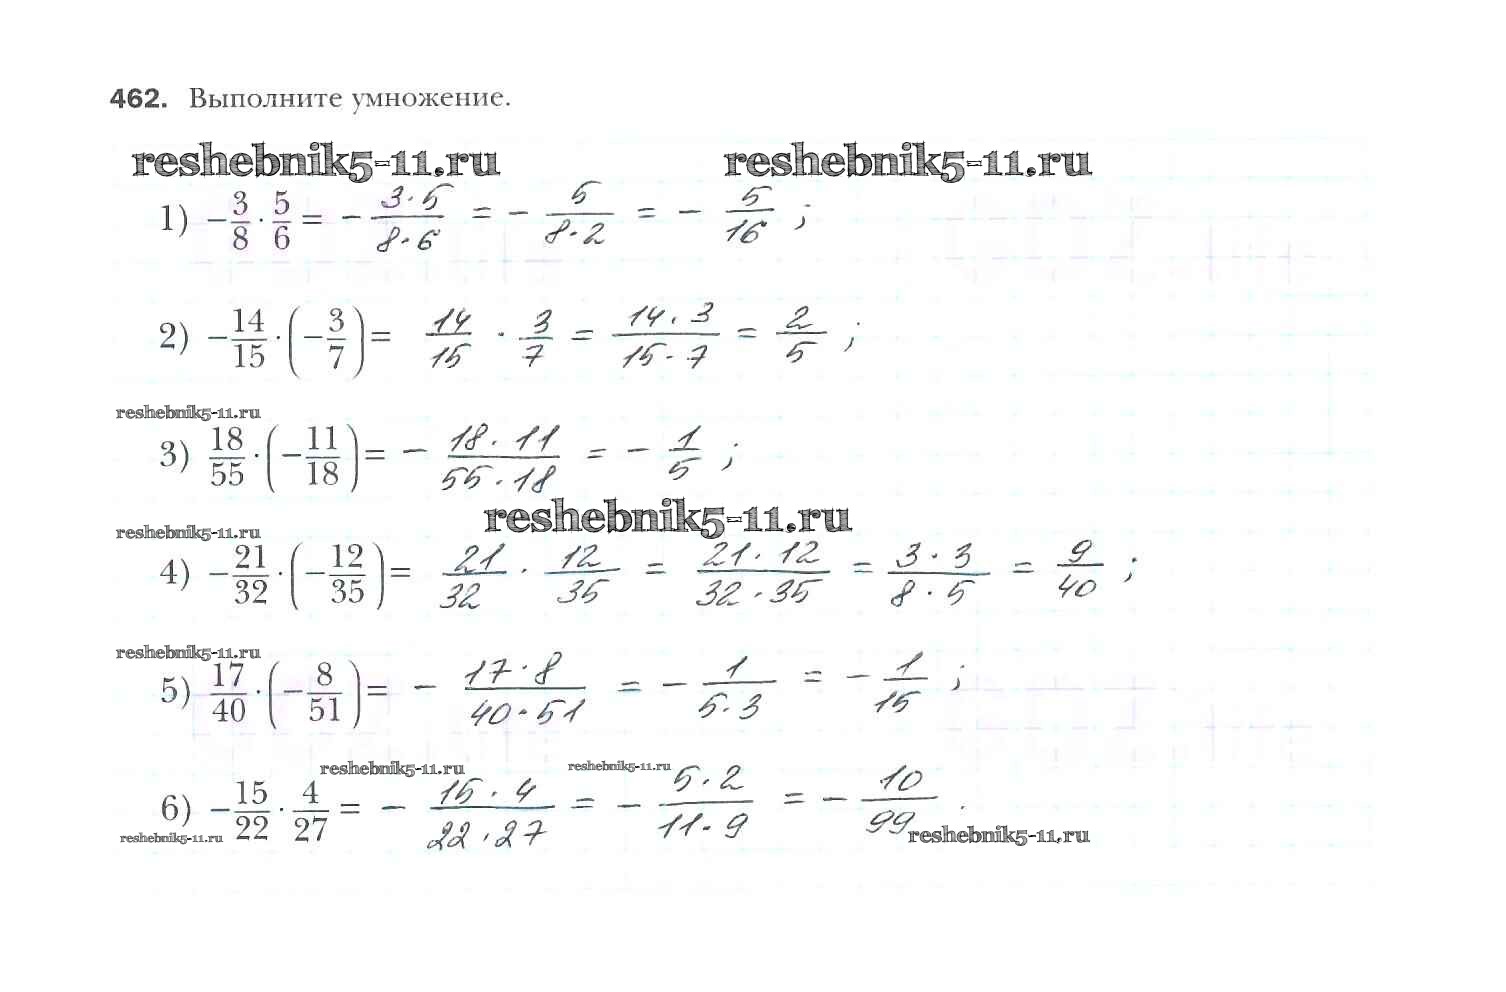 462. Выполните умножение.
reshebnik5-11.ru reshebnik5-11.ru
1) −3/8 · 5/6 = − 3·5/8·6 = − 5/8·2 = − 5/16 ;
2) −14/15 · (−3/7) = 14/15 · 3/7 = 14·3/15·7 = 2/5 ;
reshebnik5-11.ru
3) 18/55 · (−11/18) = − 18·11/55·18 = − 1/5 ;
reshebnik5-11.ru
reshebnik5-11.ru
4) −21/32 · (−12/35) = 21/32 · 12/35 = 21·12/32·35 = 3·3/8·5 = 9/40 ;
reshebnik5-11.ru
5) 17/40 · (−8/51) = − 17·8/40·51 = − 1/5·3 = − 1/15 ;
reshebnik5-11.ru reshebnik5-11.ru
6) −15/22 · 4/27 = − 15·4/22·27 = − 5·2/11·9 = − 10/99 .
reshebnik5-11.ru reshebnik5-11.ru